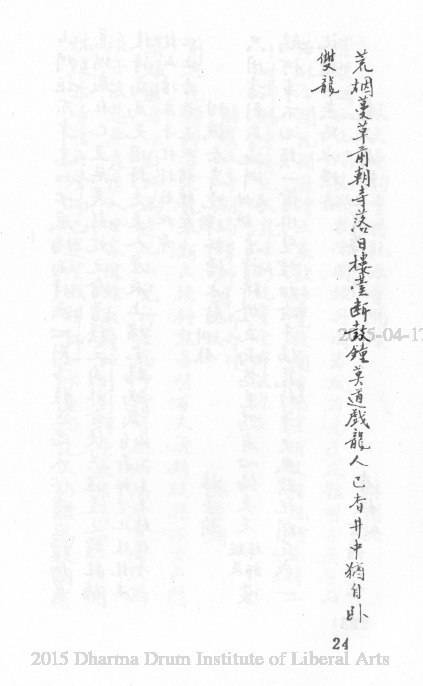 荒烟蔓草前朝寺落日樓臺断鼓鐘莫道戲龍人已杳井中猶自卧
雙龍
24
2015-04-17
2015 Dharma Drum Institute of Liberal Arts